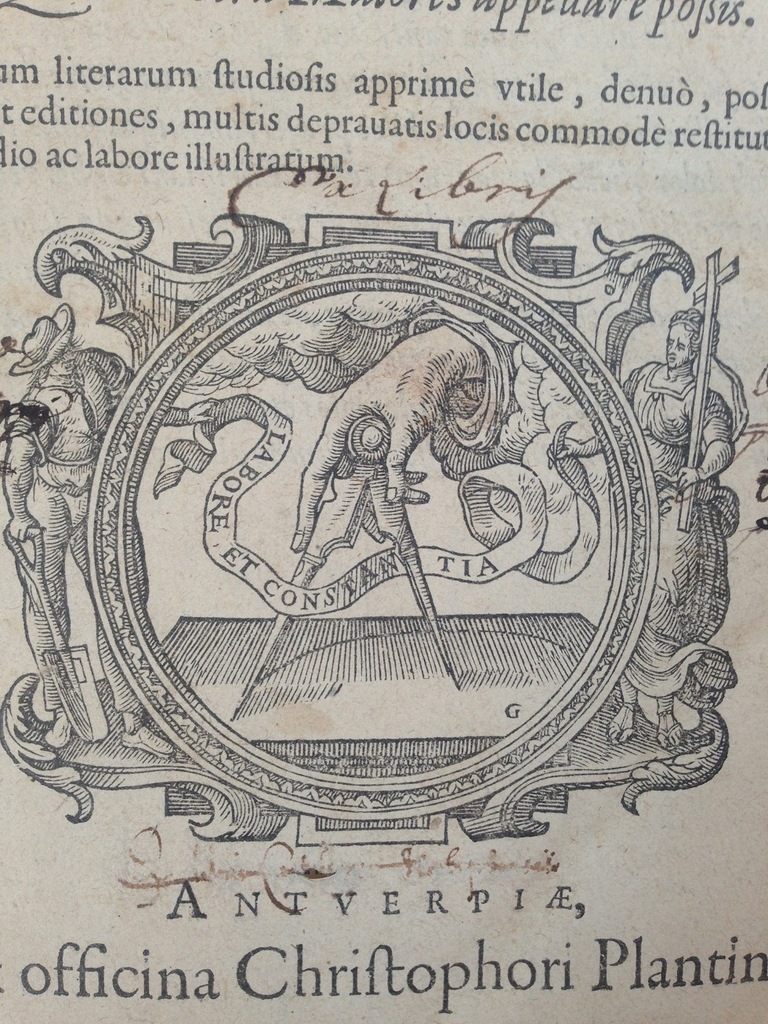 appellare poſsis.
um literarum ſtudioſis apprimè vtile, denuò, poſ
t editiones, multis deprauatis locis commodè reſtitut
dio ac labore illuſtratum.
Ex Libris
LABORE ET CONSTANTIA
G
ANTVERPIÆ,
officina Chriſtophori Plantin